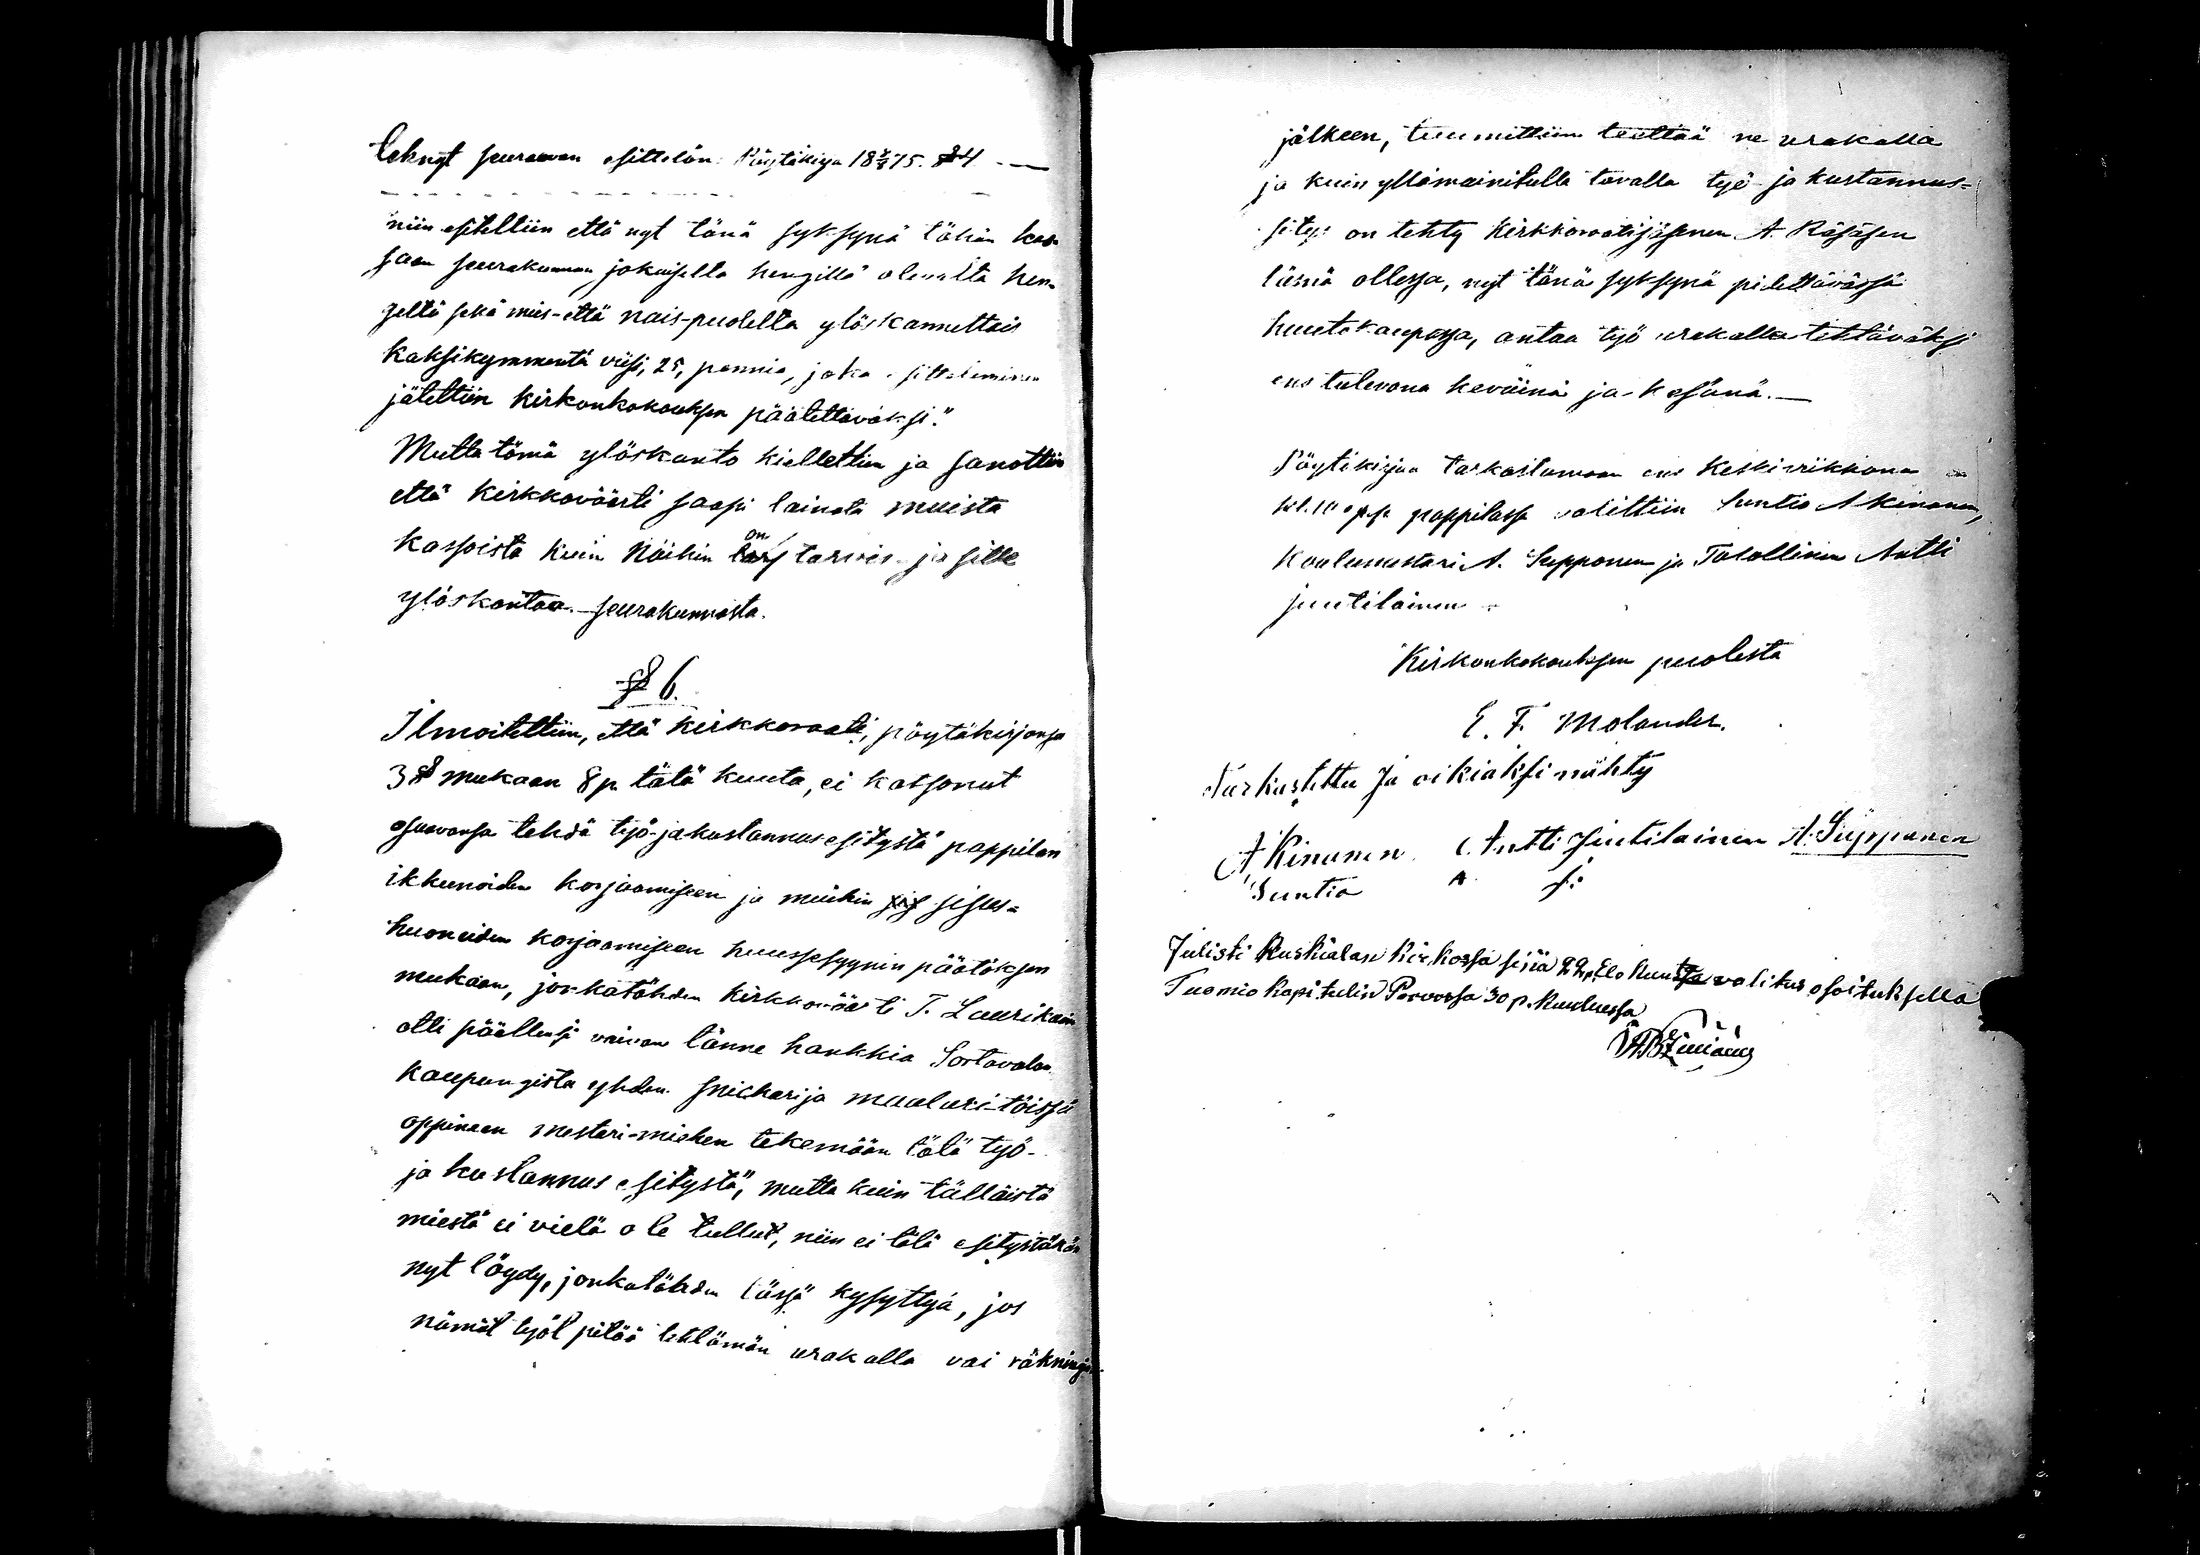 teknyt seuraavan esittelön: Pöytäkirja 18 8/8 75. § 4 —
niin esiteltiin että nyt tänä syksynä tähän kas-
saan seurakunnan jokaiselta hengillä olevalta hen-
geltä sekä mies- että nais-puolelta ylöskannettais
kaksikymmentä viisi, 25, pennia, joka esitteleminen
jätettiin kirkonkokouksen päätettäväksi."
Mutta tämä ylöskanto kiellettiin ja sanottiin
että kirkkoväärti saapi lainata muista
kassoista kuin näihin on tarvis ja sitte
ylöskantaa seurakunnasta.
§ 6.
Ilmoitettiin, että kirkkoraati, pöytäkirjansa
3 § mukaan 8 p. tätä kuuta, ei katsonut
osaavansa tehdä työ- ja kustannusesitystä pappilan
ikkunoiden korjaamiseen ja muihin sisus-
huoneiden korjaamiseen huussesyynin päätöksen
mukaan, jonkatähden kirkkoväärti T. Laurikain
otti päällensä vaivan tänne hankkia Sortavalan
kaupungista yhden snickari ja maalari-töissä
oppineen mestari-miehen tekemään tätä työ-
ja kustannus esitystä", mutta kuin tälläistä
miestä ei vielä ole tullut, niin ei tätä esitystäkän
nyt löydy, jonkatähden tässä kysyttyä, jos
nämät työt pitää tehtämän urakalla vai räkningin
jälkeen, tuumittiin teettää ne urakalla
ja kuin yllämainitulla tavalla työ- ja kustannus-
sitys on tehty kirkkoraatijäsenen A. Räsäsen
läsnä ollessa, nyt tänä syksynä pidettävässä
huutokaupassa, antaa työ urakalla tehtäväksi
ens tulevana keväinä ja kesänä. —
Pöytäkirjaa tarkastamaan ens keskiviikkona
kl. 10 pappilassa valittiin Suntio A Kinanen,
Koulumestari A. Supponen ja Talollinen Antti
Juutilainen
Kirkonkokouksen puolesta
E. F. Molander.
Tarkastettu Ja oikiaksi nähty
A Kinunen Antti Juutilainen A. Supponen
Suntio A J:
Julisti Ruskialan Kirkossa sinä 22 p. Elo kuuta valitus osoituksella
Tuomio Kapitulin Porvoossa 30 p. kuuluessa